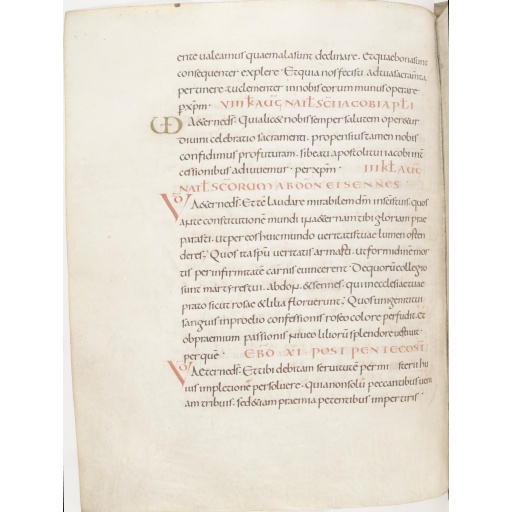 ente ualeamus quae mala sunt declinare. Et quae bona sunt
consequenter explere. Et quia nos fecisti ad tua sacram̄ta
pertinere. tu clementer in nobis eorum munus operare
p xp̄m. VIII K AUG NAT SCĪ IACOBI APLI
UD Aeterne ds̄. Quia licet nobis semper salutem operetur
diuini celebratio sacramenti. propensius tamen nobis
confidimus profuturam. si beati apostoli tui iacobi int̄
cessionibus adiuuemur. per xp̄m. IIII KL AUG
NAT SC̄ORUM ABDON ET SENNES
VD Aeterne ds̄. Et te laudare mirabilem dm̄ in sc̄is tuis quos
ante constitutionē mundi in aeternam tibi gloriam prae
parasti. ut per eos huic mundo ueritatis tuae lumen osten
deres. Quos ita sp̄u ueritatis armasti. ut formidinē mor
tis per infirmitatē carnis euincerent. De quorū collegio
sunt martyres tui. abdon. & sennes. qui in ecclesiae tuae
prato sicut rosae & lilia floruerunt. Quos unigeniti tui
sanguis in proelio confessionis roseo colore perfudit. et
ob praemium passionis niueo liliorū splendore uestiuit.
per quē. EBD XI POST PENTECOST
VD Aeterne ds̄. Et tibi debitam seruitutē per mi sterii hu
ius impletionē persoluere. quia non solū peccantibus ueni
am tribuis. sed etiam praemia petentibus impertiris.